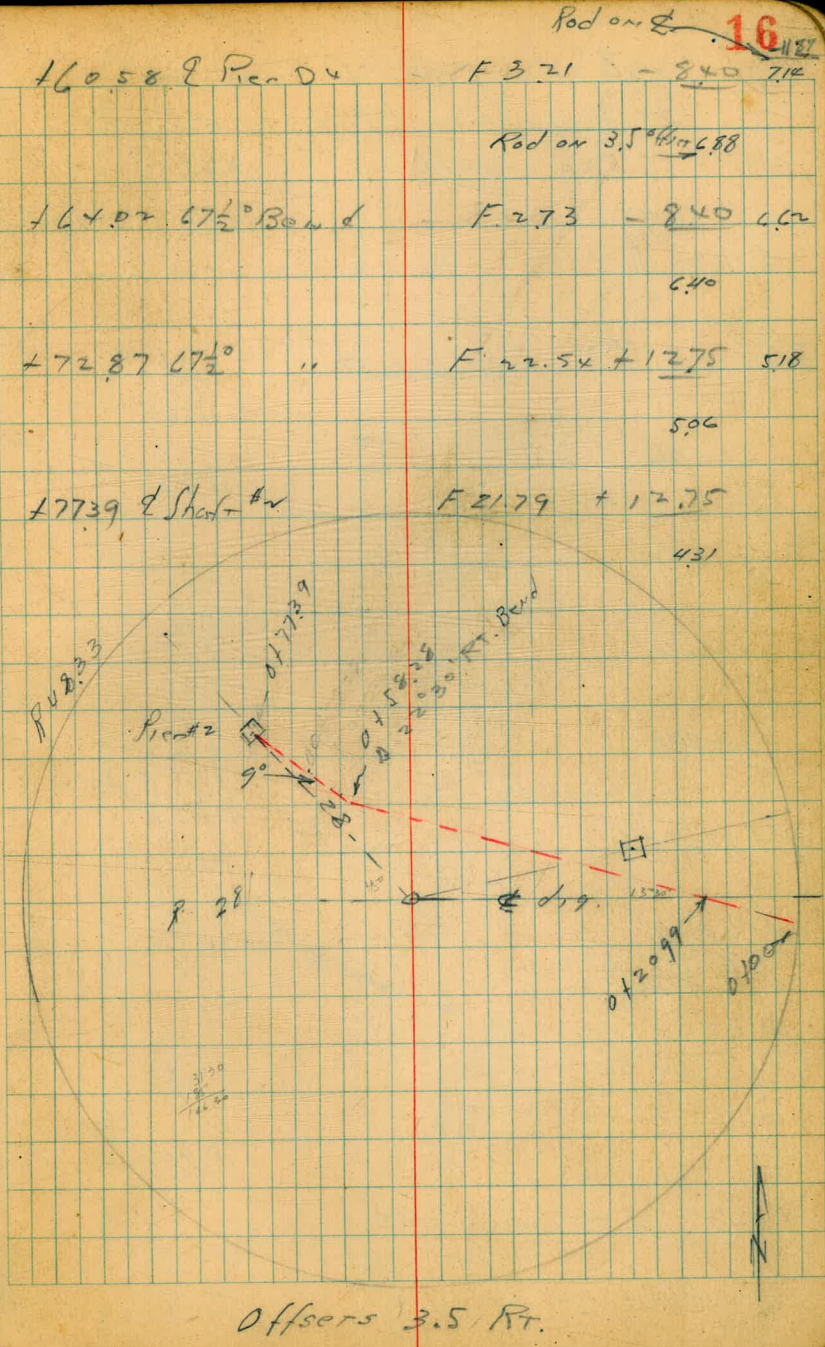 Rod on ℄
16
+60.58 ℄ Pier D4 F 3.21 - 8.40 7.14
Rod on 3.5 offset 6.88
+64.02 67½° Bend F. 2.73 - 8.40 6.62
6.40
+72.87 67½° " F 22.54 + 12.75 5.18
5.06
+77.39 ℄ Shaft #2 F 21.79 + 12.75
4.31
R 48.33
0+77.39
0+58.28
22°30' Rt. Bend
Pier #2
9°
28
R 28'
℄ dig.
0+20.99
0+00
N
Offsets 3.5 RT.